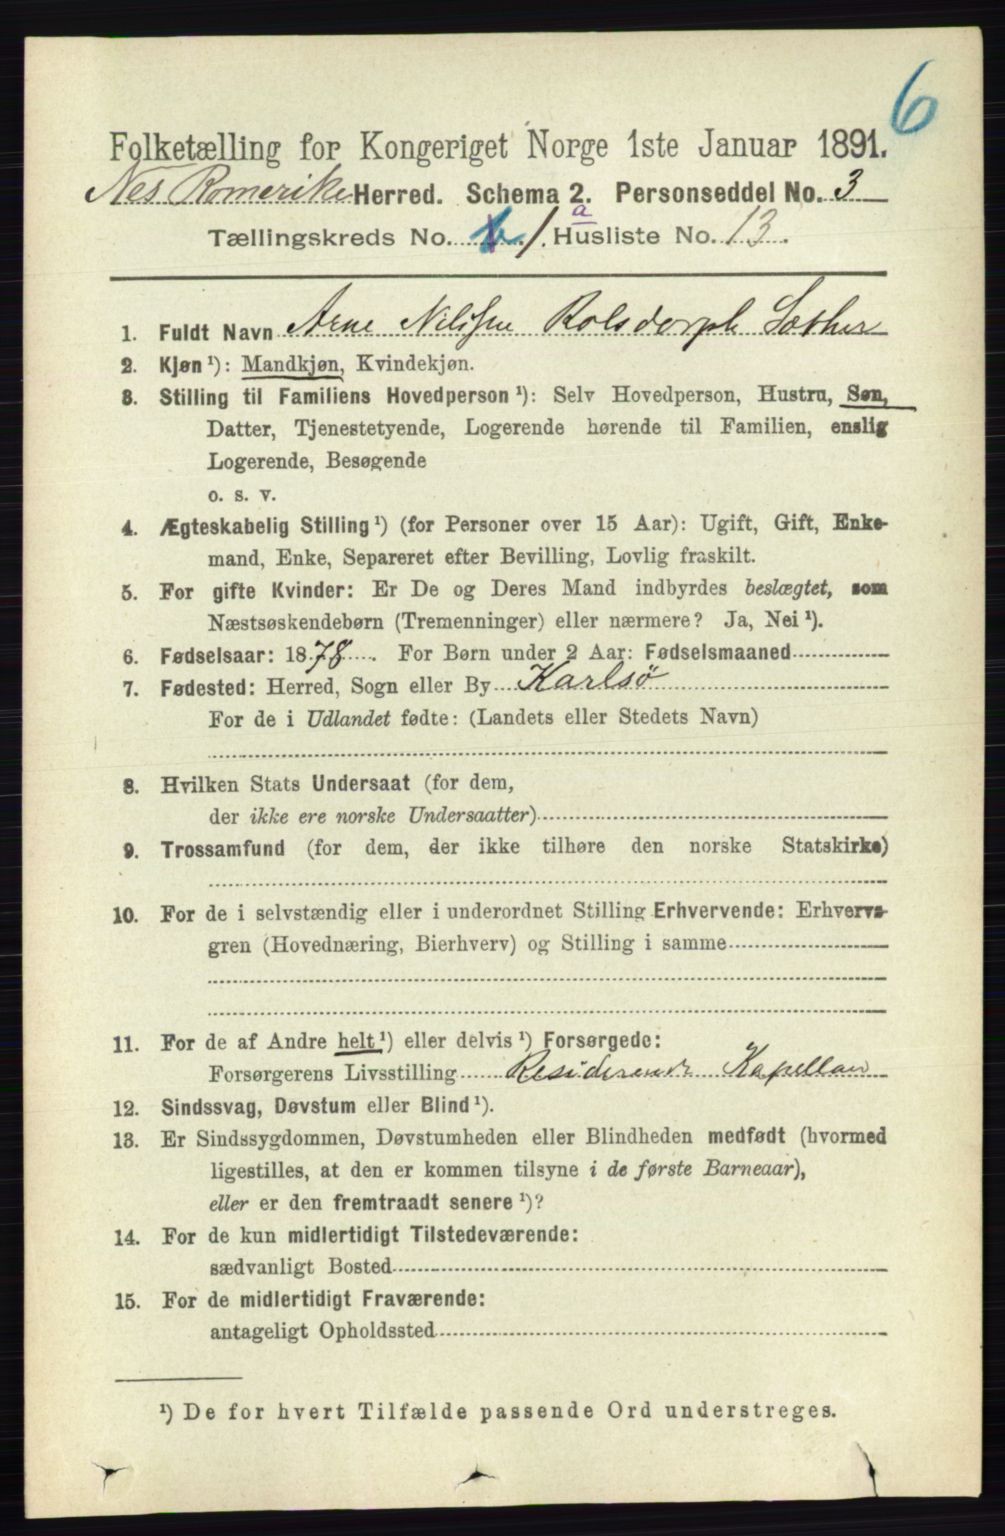 6
Folketælling for Kongeriget Norge 1ste Januar 1891.
Nes Romerike Herred. Schema 2. Personseddel No. 3
Tællingskreds No. 1. a Husliste No. 13.
1. Fuldt Navn Arne Nilssen Rolsdorph Sæther
2. Kjøn ¹): Mandkjøn, Kvindekjøn.
3. Stilling til Familiens Hovedperson ¹): Selv Hovedperson, Hustru, Søn,
Datter, Tjenestetyende, Logerende hørende til Familien, enslig
Logerende, Besøgende
o. s. v.
4. Ægteskabelig Stilling ¹) (for Personer over 15 Aar): Ugift, Gift, Enke-
mand, Enke, Separeret efter Bevilling, Lovlig fraskilt.
5. For gifte Kvinder: Er De og Deres Mand indbyrdes beslægtet, som
Næstsøskendebørn (Tremenninger) eller nærmere? Ja, Nei ¹).
6. Fødselsaar: 1878. For Børn under 2 Aar: Fødselsmaaned
7. Fødested: Herred, Sogn eller By Karlsö
For de i Udlandet fødte: (Landets eller Stedets Navn)
8. Hvilken Stats Undersaat (for dem,
der ikke ere norske Undersaatter)
9. Trossamfund (for dem, der ikke tilhøre den norske Statskirke)
10. For de i selvstændig eller i underordnet Stilling Erhvervende: Erhvervs-
gren (Hovednæring, Bierhverv) og Stilling i samme
11. For de af Andre helt ¹) eller delvis ¹) Forsørgede:
Forsørgerens Livsstilling Residerende Kapellan
12. Sindssvag, Døvstum eller Blind ¹).
13. Er Sindssygdommen, Døvstumheden eller Blindheden medfødt (hvormed
ligestilles, at den er kommen tilsyne i de første Barneaar),
eller er den fremtraadt senere ¹)?
14. For de kun midlertidigt Tilstedeværende:
sædvanligt Bosted
15. For de midlertidigt Fraværende:
antageligt Opholdssted
¹) De for hvert Tilfælde passende Ord understreges.